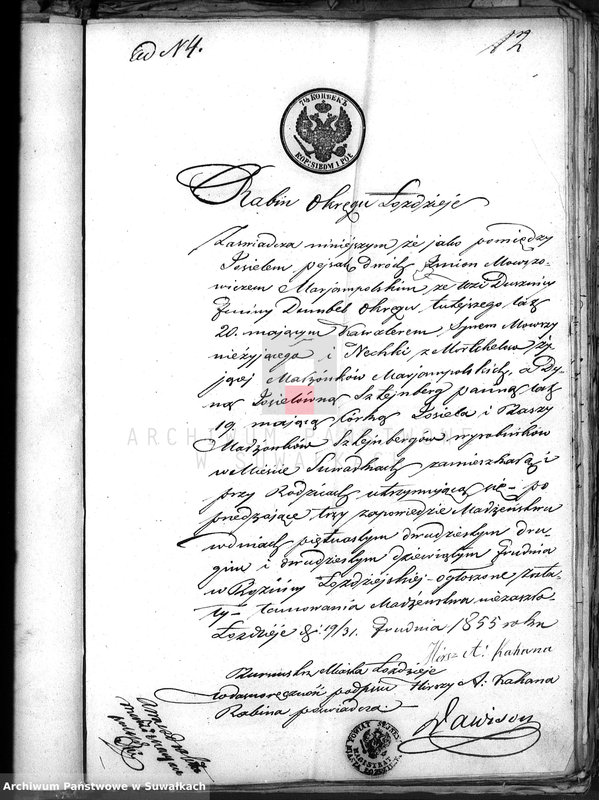 ad N 4.
12
7½ КОПѢЕКЪ
KOP: SIBOM I PÓŁ
Rabin Okręgu Łoździeje
Zaświadcza niniejszym że jako pomiędzy
Josielem Mowszo-
wiczem Marjampolskim ze Wsi
Gminy Okręgu tutejszego, lat
20. mającym Kawalerem, Synem Mowszy
nieżyjącego i Nechki z Mortchelow ży-
jącej Małżonków Marjampolskich, a Dy-
ną Josielówną Sztejnberg panną lat
19 mającą Córką Josiela i Raszy
Małżonków Sztejnbergów wyrobników
w Mieście Suwałkach zamieszkałą i
przy Rodzicach utrzymującą się - po-
przedzające trzy zapowiedzie Małżeństwa
w dniach piętnastym dwudziestym dru-
gim i dwudziestym dziewiątym Grudnia
w Bóżnicy Łoździejskiej - ogłoszone zosta-
ły - tamowania Małżeństwa niezaszło
Łoździeje d: 19/31. Grudnia 1855 roku
Hirsz A: Kahana
Burmistrz Miasta Łoździeje
własnoręczność podpisu Hirszy A: Kahana
Rabina poświadcza
ARCHIWUM PAŃSTWOWE
W SUWAŁKACH
Archiwum Państwowe w Suwałkach